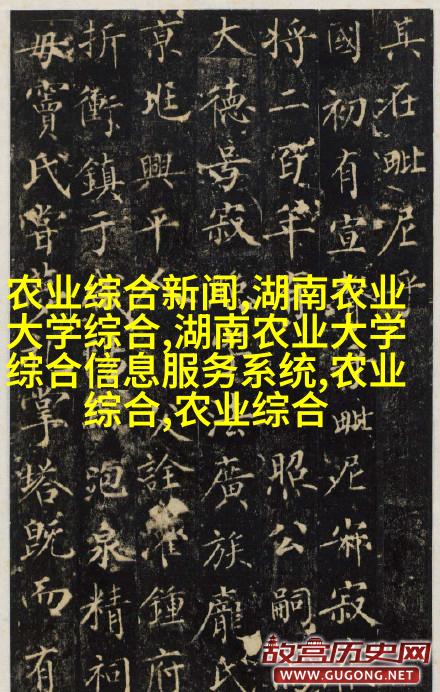 其在毗尼乎
國初有宣毗尼寂
将二百年照公嗣
大德号寂廣族龐氏
京兆興平人詮鍾府
折衝鎮于泡泉精祠
母竇氏嘗掌塔既而有
农业综合新闻,湖南农业
大学综合,湖南农业大学
综合信息服务系统,农业
综合,农业综合
故宫历史网
WWW.GUGONG.NET